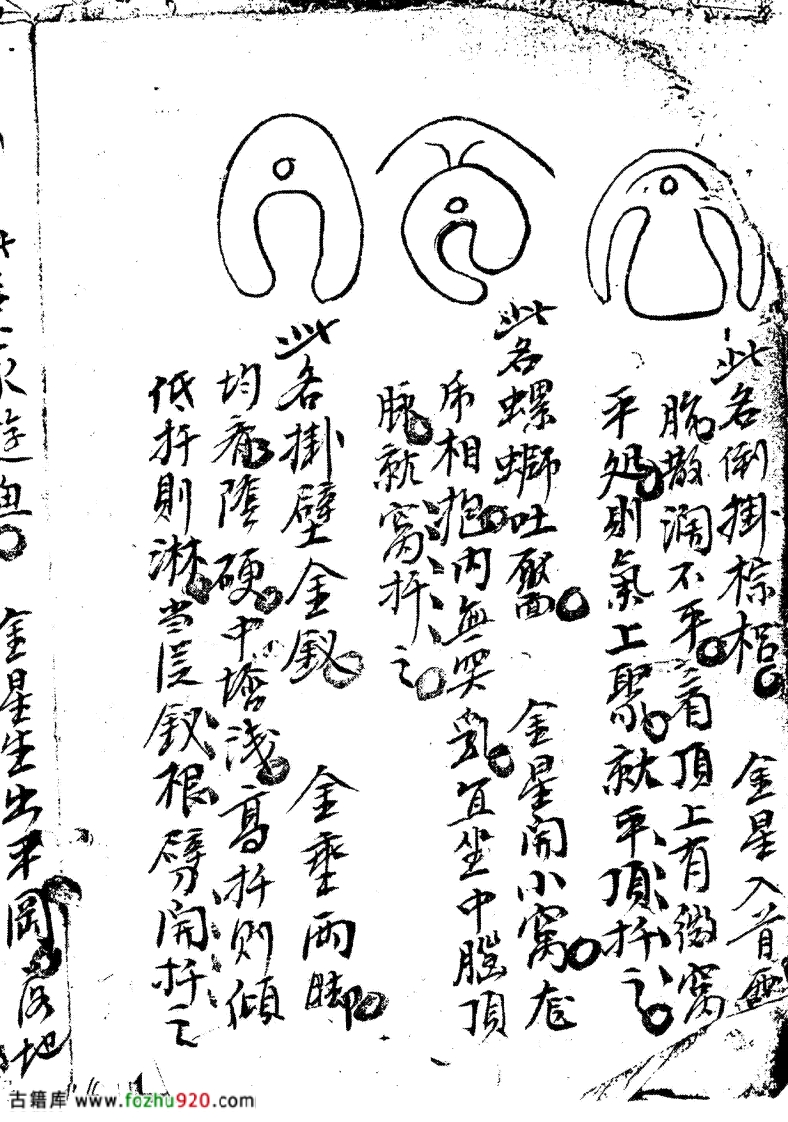 此名倒掛棕梠 金星入首
脑散濶不平若頂上有微窩
平処則氣上聚就平頂扦之
此名螺螄吐靨 金星開小窩
相抱内無突乳宜坐中腦頂
脉就窩扦之
此名掛壁金釵 金垂兩脚
均看隂硬中塔浅高扦則傾
低扦則淋当従釵根劈開扦之
金星生出平岡落地
古籍库 www.fozhu920.com